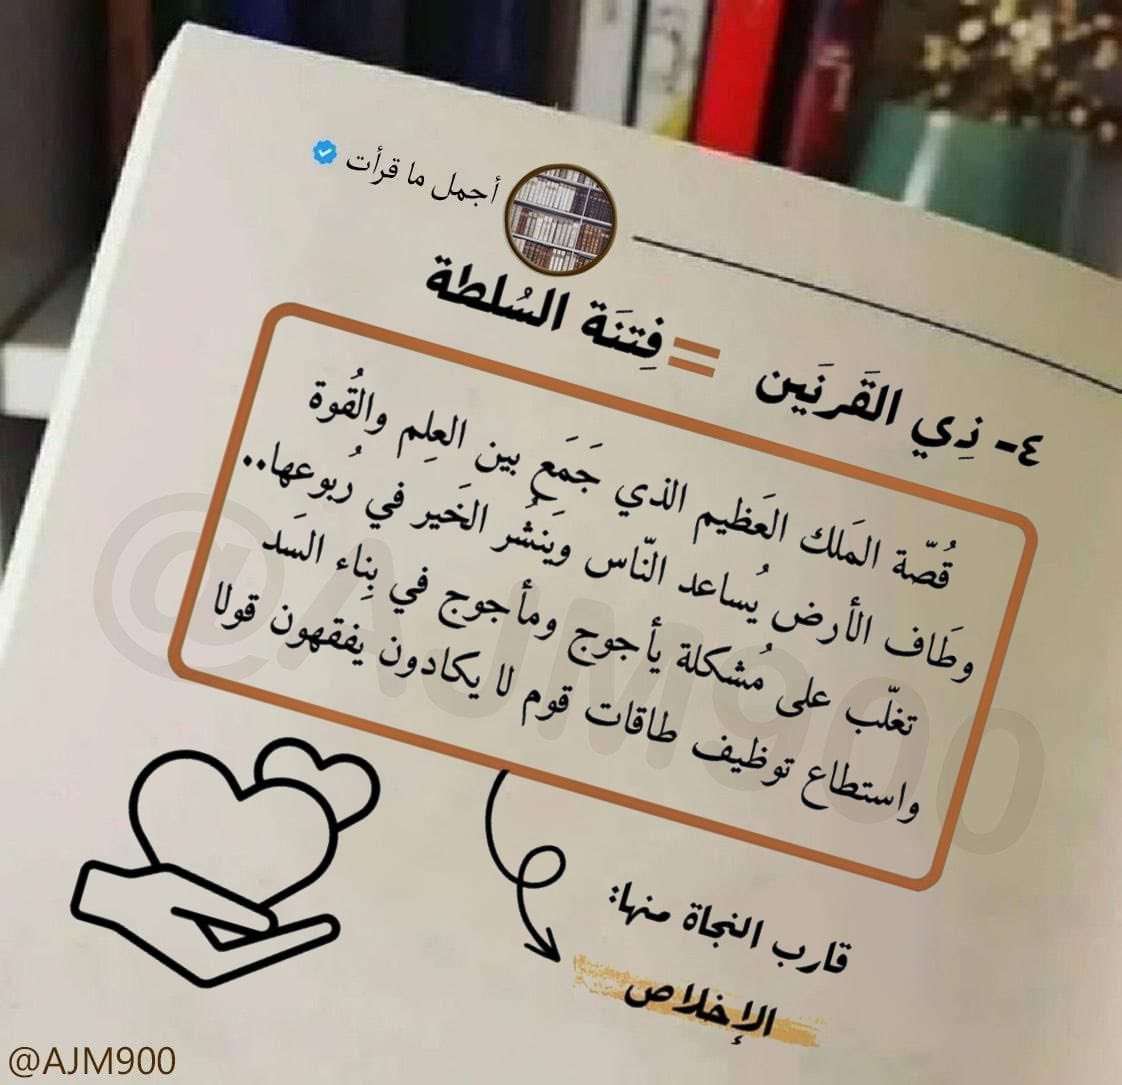 أجمل ما قرأت
٤- ذِي القَرنَين = فِتنَة السُلطة
قُصّة المَلك العَظيم الذي جَمَع بين العِلم والقُوة
وطَاف الأرض يُساعد النّاس وينشُر الخَير في رُبوعها..
تغلّب على مُشكلة يأجوج ومأجوج في بِناء السَد
واستطاع توظيف طاقات قوم لا يكادون يفقهون قولا
قارب النجاة منها:
الإخلاص
@AJM900
@AJM900